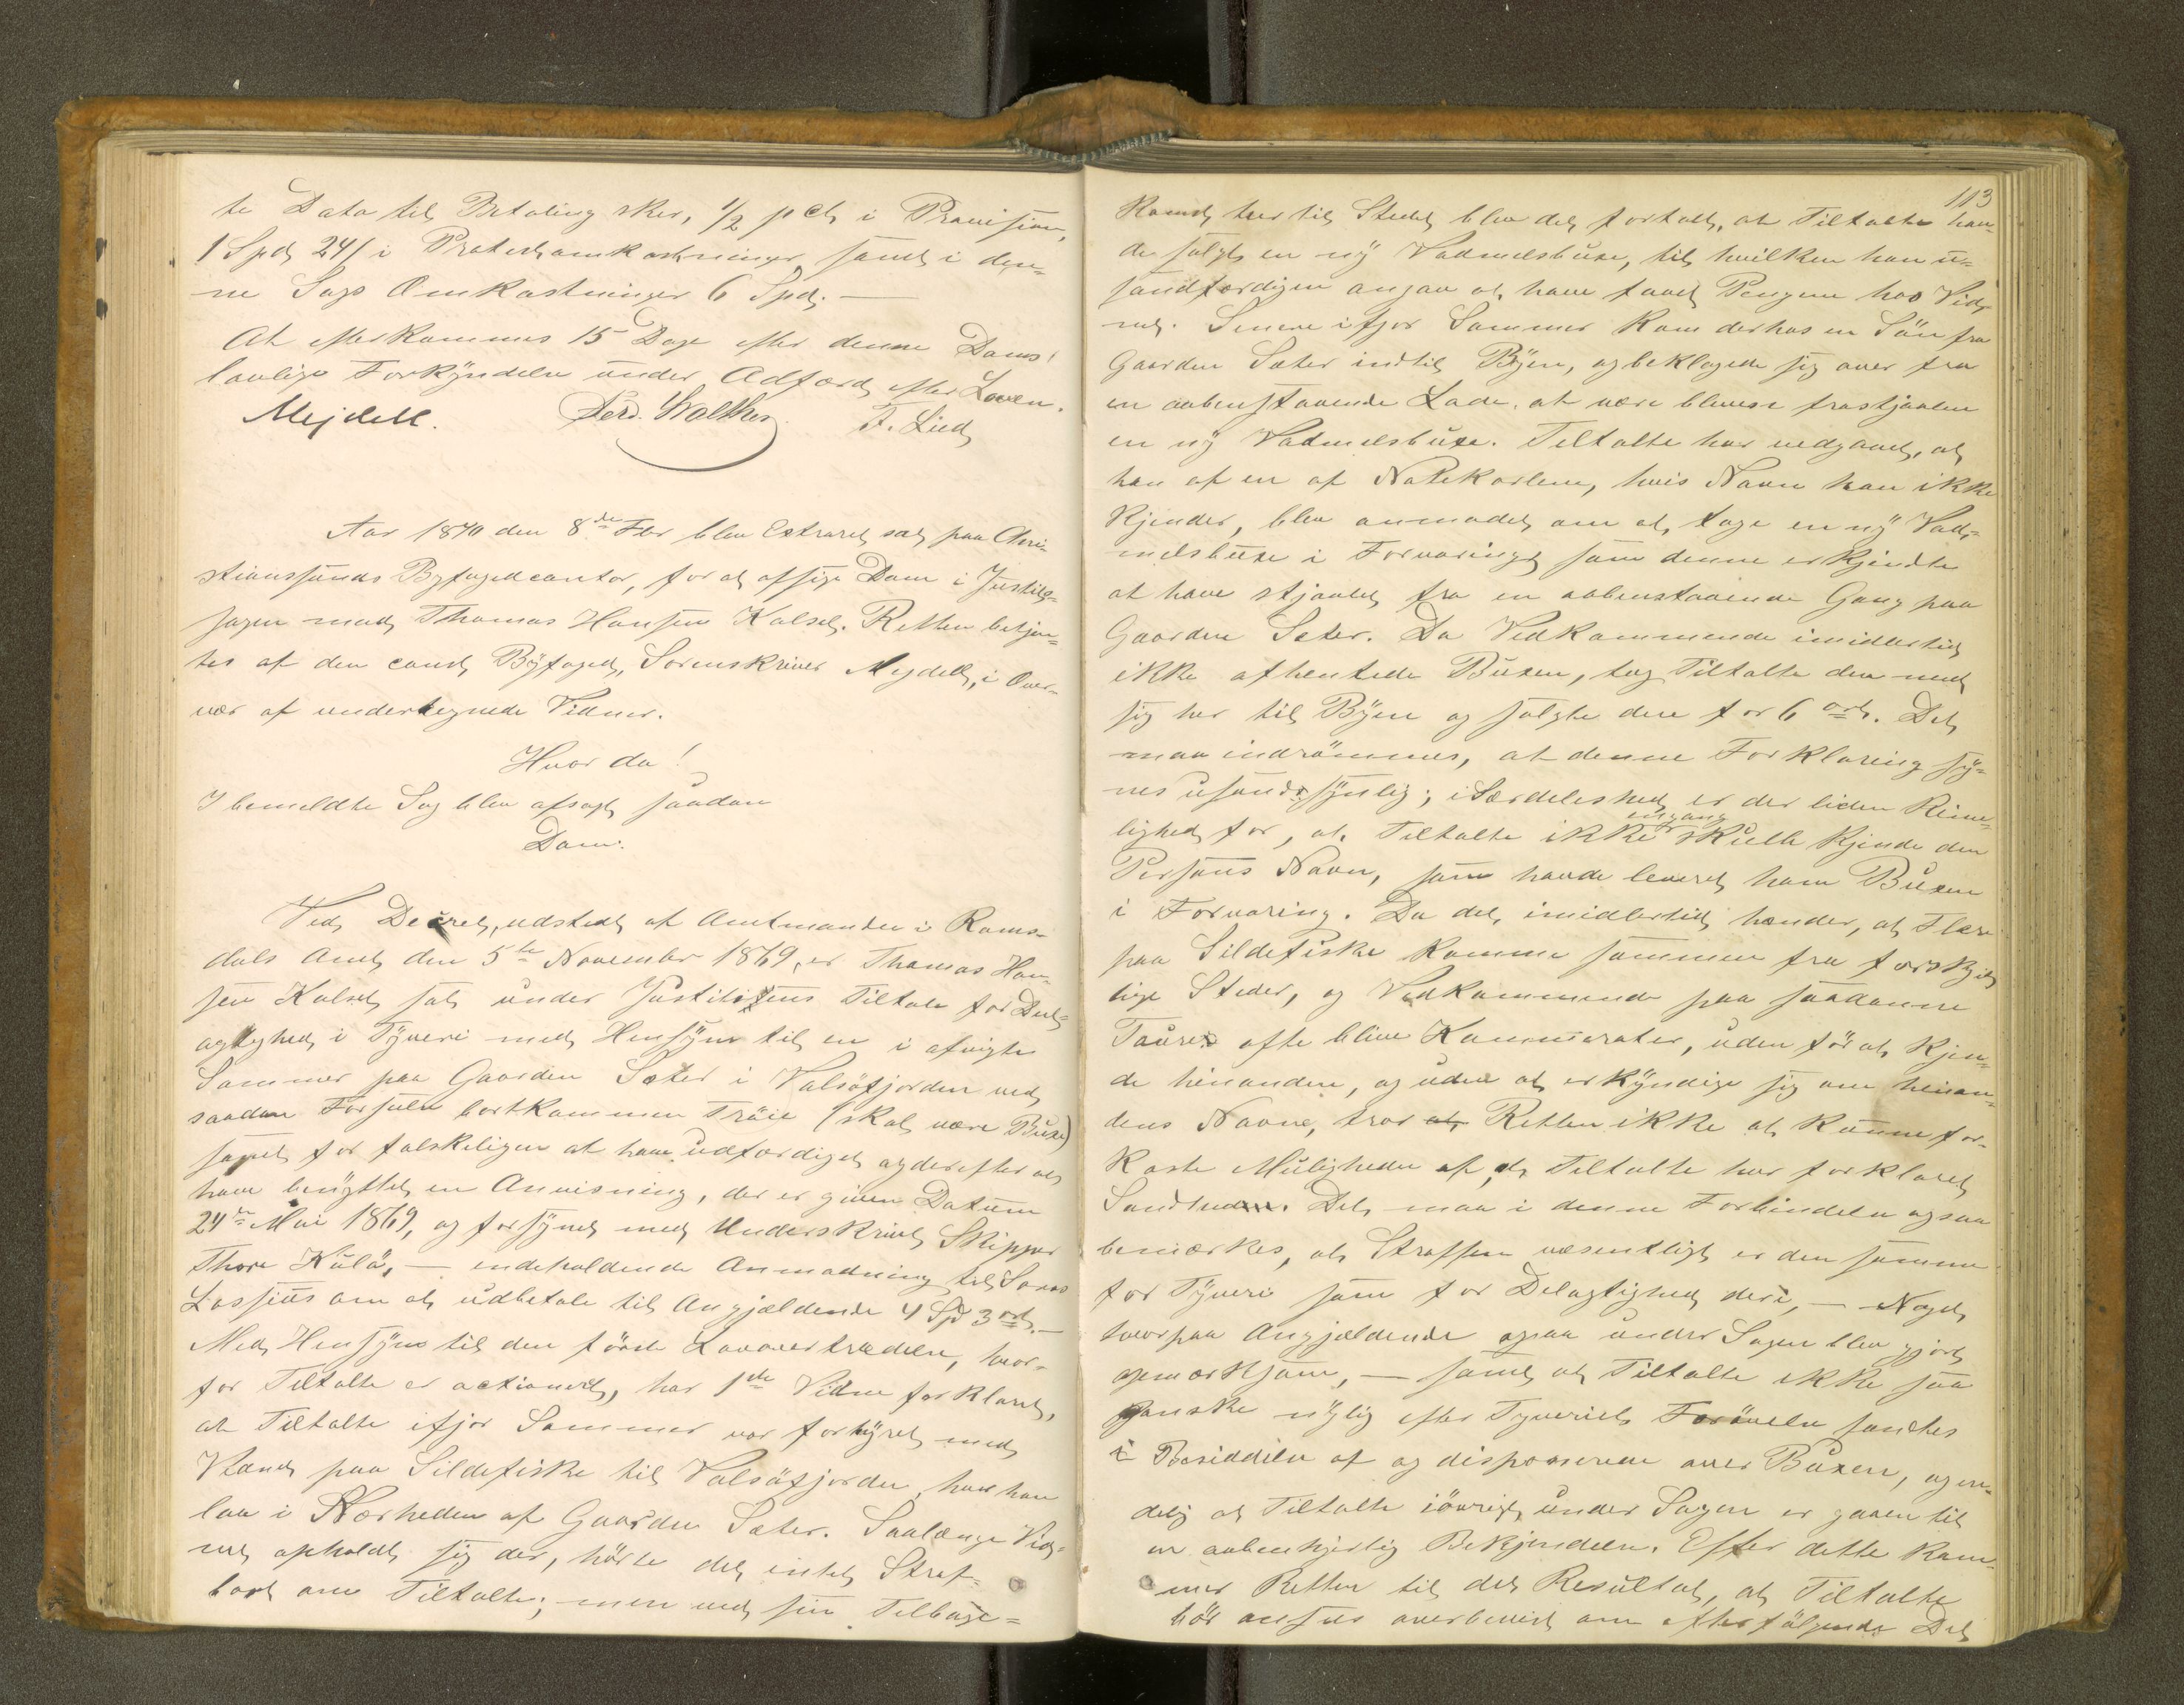 te Data til Betaling sker, 1/2 pCt i Provision,
1 Spd 24 ß i Protestomkostninger samt i den-
ne Sags Omkostninger 6 Spd. —
At efterkommes 15 Dage efter denne Doms
lovlige Forkyndelse under Adfærd efter Loven.
Mejdell. Ferd. Walther F. Lied
Aar 1870 den 8de Fbr blev Extraret sat paa Chri-
stianssunds Byfogedcontor, for at afsige Dom i Justits-
sagen mod Thomas Hansen Kalset. Retten betjen-
tes af den const. Byfoged, Sorenskriver Mejdell, i Over-
vær af undertegnede Vidner.
Hvor da!
I bemeldte Sag blev afsagt saadan
Dom:
Ved Decret, udstedt af Amtmanden i Roms-
dals Amt den 5te November 1869, er Thomas Han-
sen Kalset sat under Justitiens Tiltale for Del-
agtighed i Tyveri med Hensyn til en i afvigte
Sommer paa Gaarden Sæter i Valsøfjorden ved
saadan Forseelse bortkommen Trøie (skal være Buxe)
samt for falskeligen at have udfærdiget og derefter at
have benyttet en Anvisning, der er given Datum
24de Mai 1869, og forsynet med Underskrivt Skipper
Thore Kulø, — indeholdende Anmodning til
Lossius om at udbetale til Angjældende 4 Spd 3 ort. —
Med Hensyn til den første Lovovertrædelse, hvor-
for Tiltalte er actioneret, har 1ste Vidne forklaret,
at Tiltalte ifjor Sommer var forhyret med
Vidnet paa Sildefiske til Valsøfjorden, hvor han
laa i Nærheden af Gaarden Sæter. Saalænge Vid-
net opholdt sig der, hørte det intet Straf-
bart om Tiltalte; men ved sin Tilbage-
113
komst her til Stedet blev det fortalt, at Tiltalte hav-
de solgt en ny Vadmelsbuxe, til hvilken han u-
sandfærdigen angav at have faaet Pengene hos Vid-
net. Senere ifjor Sommer kom derhos en Søn fra
Gaarden Sæter ind til Byen, og beklagede sig over fra
en aabenstaaende Lade at være bleven frastjaalen
en ny Vadmelsbuxe. Tiltalte har vedgaaet, at
han af en af Notekarlene, hvis Navn han ikke
kjender, blev anmodet om at tage en ny Vad-
melsbuxe i Forvaring som denne erkjendte
at have stjaalet fra en aabenstaaende Gang paa
Gaarden Sæter. Da Vedkommende imidlertid
ikke afhentede Buxen, tog Tiltalte den med
sig her til Byen og solgte den for 6 ort. Det
maa indrømmes, at denne Forklaring sy-
nes usandsynlig; i Særdeleshed er der liden Rime-
lighed for, at Tiltalte ikke engang skulle kjende den
Persons Navn, som havde leveret ham Buxen
i Forvaring. Da det imidlertid hænder, at Flere
paa Sildefiske komme sammen fra forskjel-
lige Steder, og Vedkommende paa saadanne
Toure ofte blive Kammerater, uden før at kjen-
de hinanden, og uden at erkyndige sig om hinan-
dens Navne, tror Retten ikke at kunne for-
kaste Muligheden af, at Tiltalte har forklaret
Sandheden. Det maa i denne Forbindelse ogsaa
bemærkes, at Straffen væsentligt er den samme
for Tyveri som for Delagtighed deri, — Noget
hvorpaa Angjældende ogsaa under Sagen blev gjort
opmærksom, — samt at Tiltalte ikke saa
ganske nylig efter Tyveriets Forøvelse fandtes
i Besiddelse af og disponerende over Buxen, og en-
delig at Tiltalte iøvrigt under Sagen er gaaen til
en aabenhjertig Bekjendelse. Efter dette kom-
mer Retten til det Resultat, at Tiltalte
bør ansees overbevist om efterfølgende Del